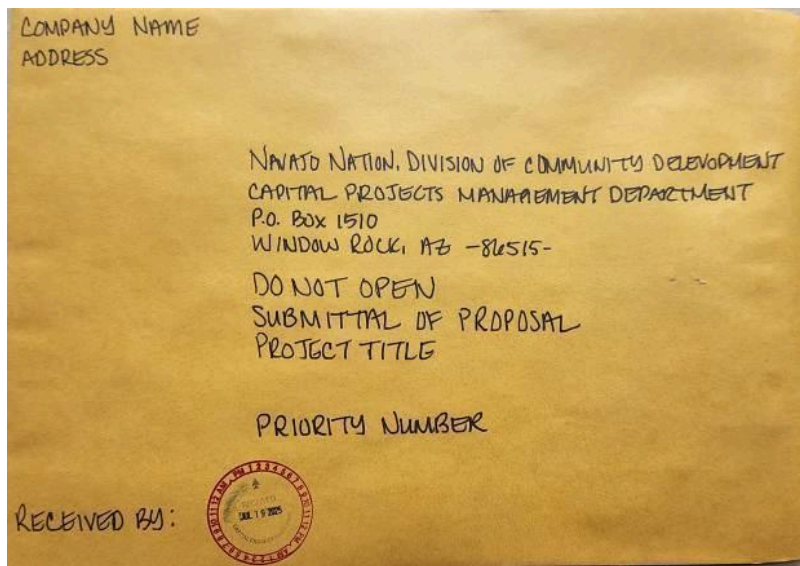 COMPANY NAME
ADDRESS
NAVAJO NATION, DIVISION OF COMMUNITY DELEVOPMENT
CAPITAL PROJECTS MANAGEMENT DEPARTMENT
P.O. BOX 1510
WINDOW ROCK, AZ -86515-
DO NOT OPEN
SUBMITTAL OF PROPOSAL
PROJECT TITLE
PRIORITY NUMBER
RECEIVED BY:
RECEIVED
2025